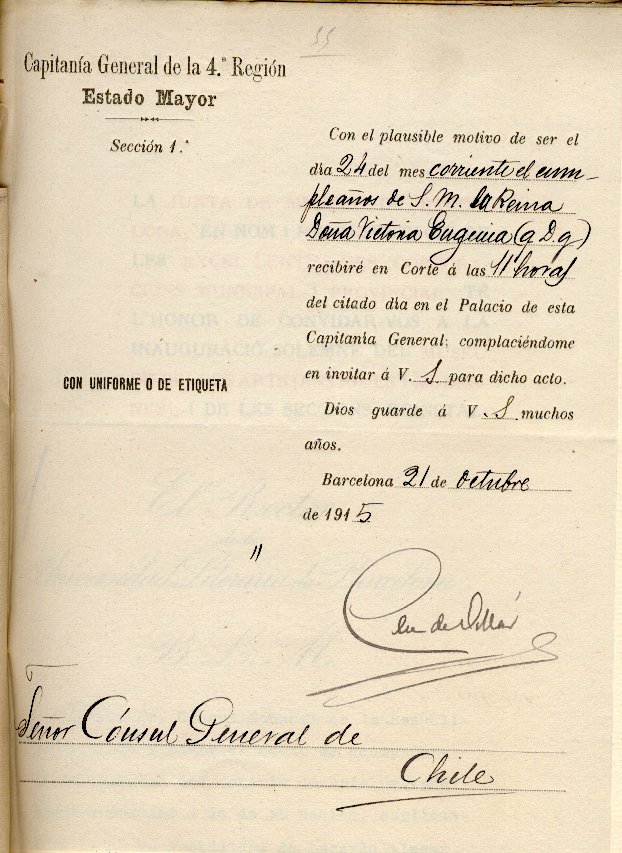 55
Capitanía General de la 4.ª Región
Estado Mayor
Sección 1.ª
Con el plausible motivo de ser el
día 24 del mes corriente el cum-
pleaños de S. M. la Reina
Doña Victoria Eugenia (q D g)
recibiré en Corte á las 11 horas
del citado día en el Palacio de esta
Capitanía General; complaciéndome
en invitar á V. S para dicho acto.
Dios guarde á V. S muchos
años.
CON UNIFORME O DE ETIQUETA
Barcelona 21 de Octubre
de 1915
Señor Cónsul General de
Chile